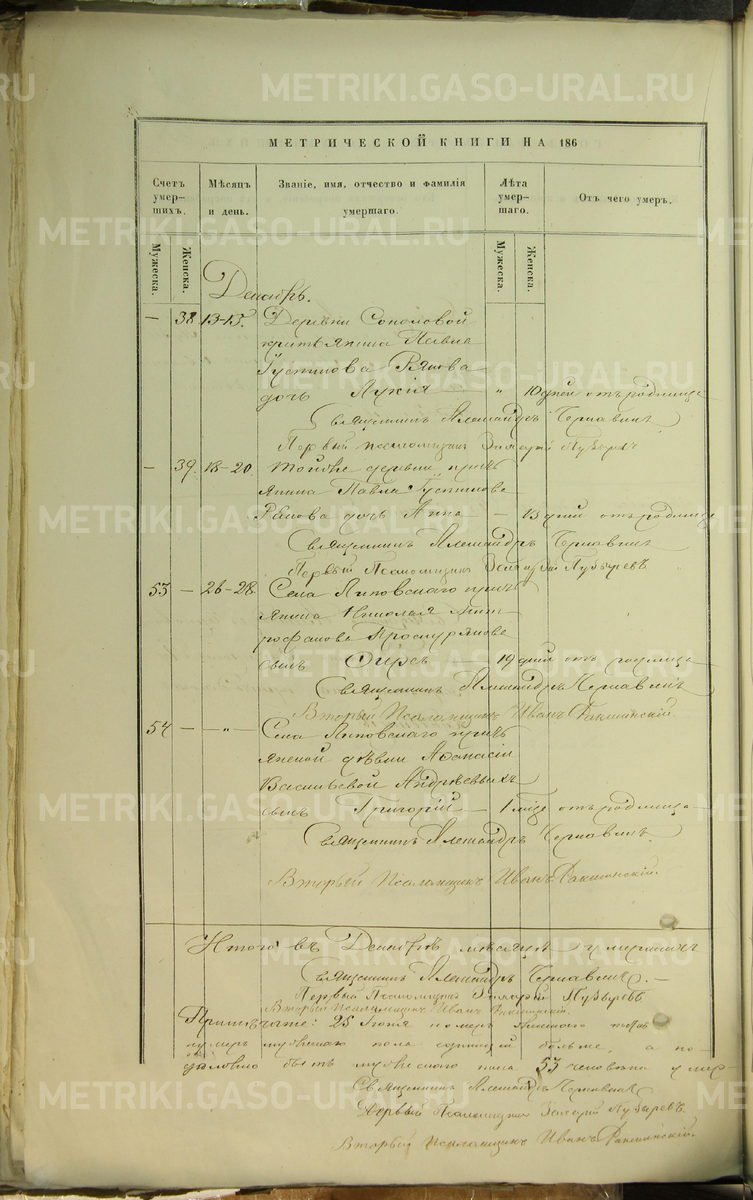 METRIKI.GASO-URAL.RU
МЕТРИЧЕСКОЙ КНИГИ НА 186
Счетъ умер-шихъ.
Мѣсяцъ и день.
Званіе, имя, отчество и фамилія умершаго.
Лѣта умер-шаго.
Отъ чего умеръ.
Мужеска.
Женска.
Мужеска.
Женска.
Декабрь.
— 38 13-15. Деревни Соколовой
крестьянина Павла
Густинова
дочь Лукія — " 10 дней отъ родимца
Священникъ Александръ Чернавинъ
Первый псаломщикъ Захарій Пузыревъ
— 39. 18-20 Тойже деревни крест
янина Павла Густинова
дочь Анна — 13 дней отъ родимца
Священникъ Александръ Чернавинъ
Первый Псаломщикъ Захарій Пузыревъ
53 — 26-28. Села Липовскаго крест
янина Николая Мит
рофанова Проскурякова
сынъ — 19 дней отъ родимца
Священникъ Александръ Чернавинъ
Вторый Псаломщикъ Иванъ
54 — — " — Села Липовскаго крест
янской дѣвки Афанасіи
Васильевой Андреевыхъ
сынъ Григорій — 1 мѣс отъ родимца
Священникъ Александръ Чернавинъ.
Вторый Псаломщикъ Иванъ
Итого въ Декабрѣ мѣсяцѣ умершихъ
Священникъ Александръ Чернавинъ. —
Первый Псаломщикъ Захарій Пузыревъ
Вторый Псаломщикъ Иванъ
Примѣчаніе: 25 Іюля номеръ
нумеръ мужескаго пола единицей больше, а по
быть мужескаго пола 53 человѣка умер
Священникъ Александръ Чернавинъ
Первый Псаломщикъ Захарій Пузыревъ
Вторый Псаломщикъ Иванъ